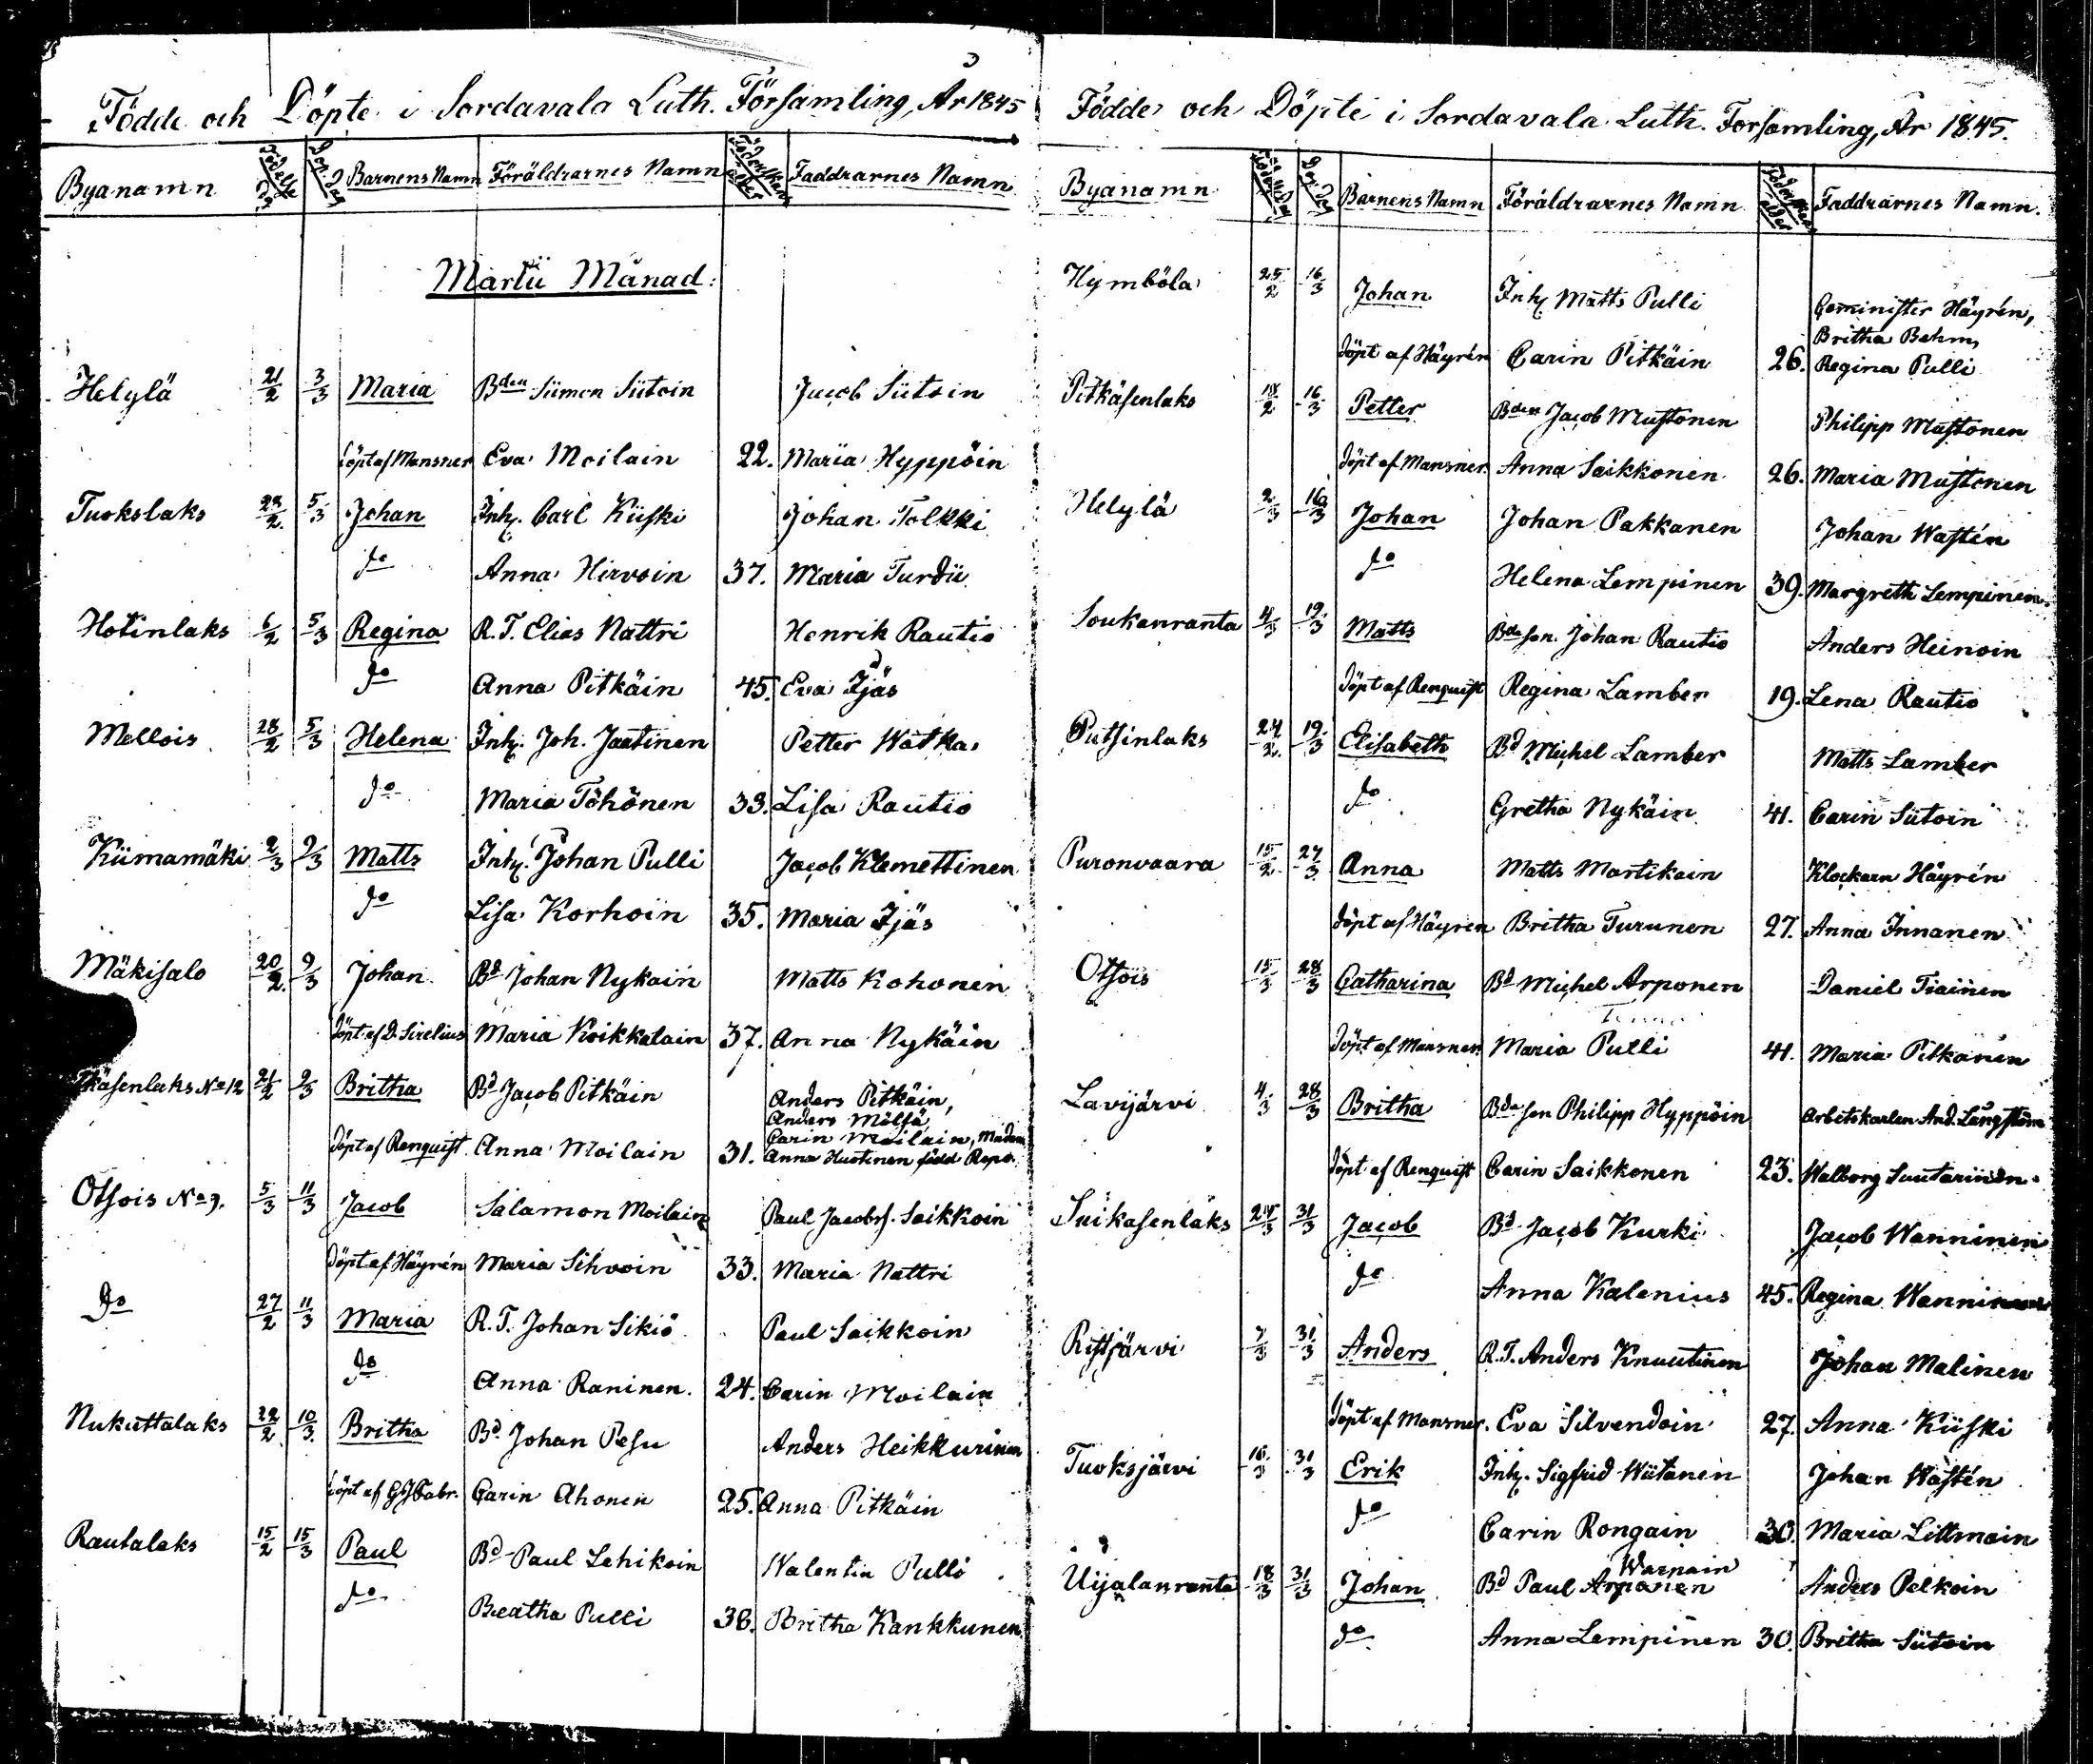 Födde och Döpte i Sordavala Luth. Församling, År 1845
Byanamn Födelse dag Dop. dag Barnens Namn Föräldrarnes Namn Föderskans ålder Faddrarnes Namn
Martii Månad:
Helylä 21/2 3/3 Maria Bden Siimon Siitoin Jacob Siitoin
döpt af Mansner Eva Moilain 22. Maria Hyppöin
Tuokslaks 28/2 5/3 Johan Inh. Carl Kiiski Johan Tolkki
do Anna Hirvoin 37. Maria Turdii
Hotinlaks 6/2 5/3 Regina R.T. Elias Nattri Henrik Rautio
do Anna Pitkäin 45. Eva Ijäs
Mellois 28/2 5/3 Helena Inh. Joh. Jaatinen Petter Watka
do Maria Töhönen 33. Lisa Rautio
Kiimamäki 2/3 9/3 Matts Inh. Johan Pulli Jacob Klemettinen
do Lisa Korhoin 35. Maria Ijäs
Mäkisalo 20/2 9/3 Johan Bd Johan Nykäin Matts Kohonen
döpt af D. Sirelius Maria Koikkalain 37. Anna Nykäin
käsenlaks No 12 21/2 9/3 Britha Bd Jacob Pitkäin Anders Pitkäin,
Anders Mölsä,
Carin Moilain, Madam
döpt af Renquist Anna Moilain 31. Anna Hustinen född Repo.
Otsois No 9. 5/3 11/3 Jacob Salamon Moilain Paul Jacobss. Saikkoin
döpt af Häyrén Maria Sihvoin 33. Maria Nattri
Do 27/2 11/3 Maria R.T. Johan Sikiö Paul Saikkoin
do Anna Raninen. 24. Carin Moilain
Nukuttalaks 22/2 10/3 Britha Bd Johan Pesu Anders Heikkurinen
döpt af GJFabr. Carin Ahonen 25. Anna Pitkäin
Rautalaks 15/2 15/3 Paul Bd Paul Lehikoin Valentin Pulli
do Beatha Pulli 38. Britha Kankkunen
Födde och Döpte i Sordavala Luth. Forsamling, År 1845.
Byanamn Dop. Dag Barnens Namn Föräldrarnes Namn Föderskans ålder Faddrarnes Namn.
Hymböla 25/2 16/3 Johan Inh. Matts Pulli Comminister Häyrén,
Britha Behm,
döpt af Häyrén Carin Pitkäin 26. Regina Pulli
Pitkäsenlaks 18/2 16/3 Petter Bden Jacob Mustonen Philipp Mustonen
döpt af Mansner Anna Saikkonen 26. Maria Mustonen
Helylä 2/3 16/3 Johan Johan Pakkanen Johan Wastén
do Helena Lempinen 39. Margreth Lempinen
Soukanranta 4/3 19/3 Matts Bde son. Johan Rautio Anders Heinoin
döpt af Renquist Regina Lamber 19. Lena Rautio
Putsinlaks 24/2 19/3 Elisabeth Bd Michel Lamber Matts Lamber
do Gretha Nykäin 41. Carin Siitoin
Puronvaara 15/2 27/3 Anna Matts Martikain Klockarn Häyrén
döpt af Häyren Britha Turunen 27. Anna Innanen
Otsois 15/3 28/3 Catharina Bd Michel Arponen Daniel Tiainen
döpt af Mansner Maria Pulli 41. Maria Pitkänen
Lavijärvi 4/3 28/3 Britha Bde son Philipp Hyppöin Arbetskarlen And. Långström
döpt af Renquist Carin Saikkonen 23. Walborg Suutarinen
Suikasenlaks 24/3 31/3 Jacob Bd Jacob Kurki Jacob Wanninen
do Anna Kalenius 45. Regina Wanninen
Ristjärvi 7/3 31/3 Anders R.T. Anders Knuutinen Johan Malinen
döpt af Mansner. Eva Silvendoin 27. Anna Kiiski
Tuoksjärvi 16/3 31/3 Erik Inh. Sigfrid Wiitanen Johan Wastén
do Carin Rongain 30. Maria Littmain
Uijalanranta 18/3 31/3 Johan Bd Paul Arponen Warpain Anders Pelkoin
do Anna Lempinen 30. Britha Siitoin